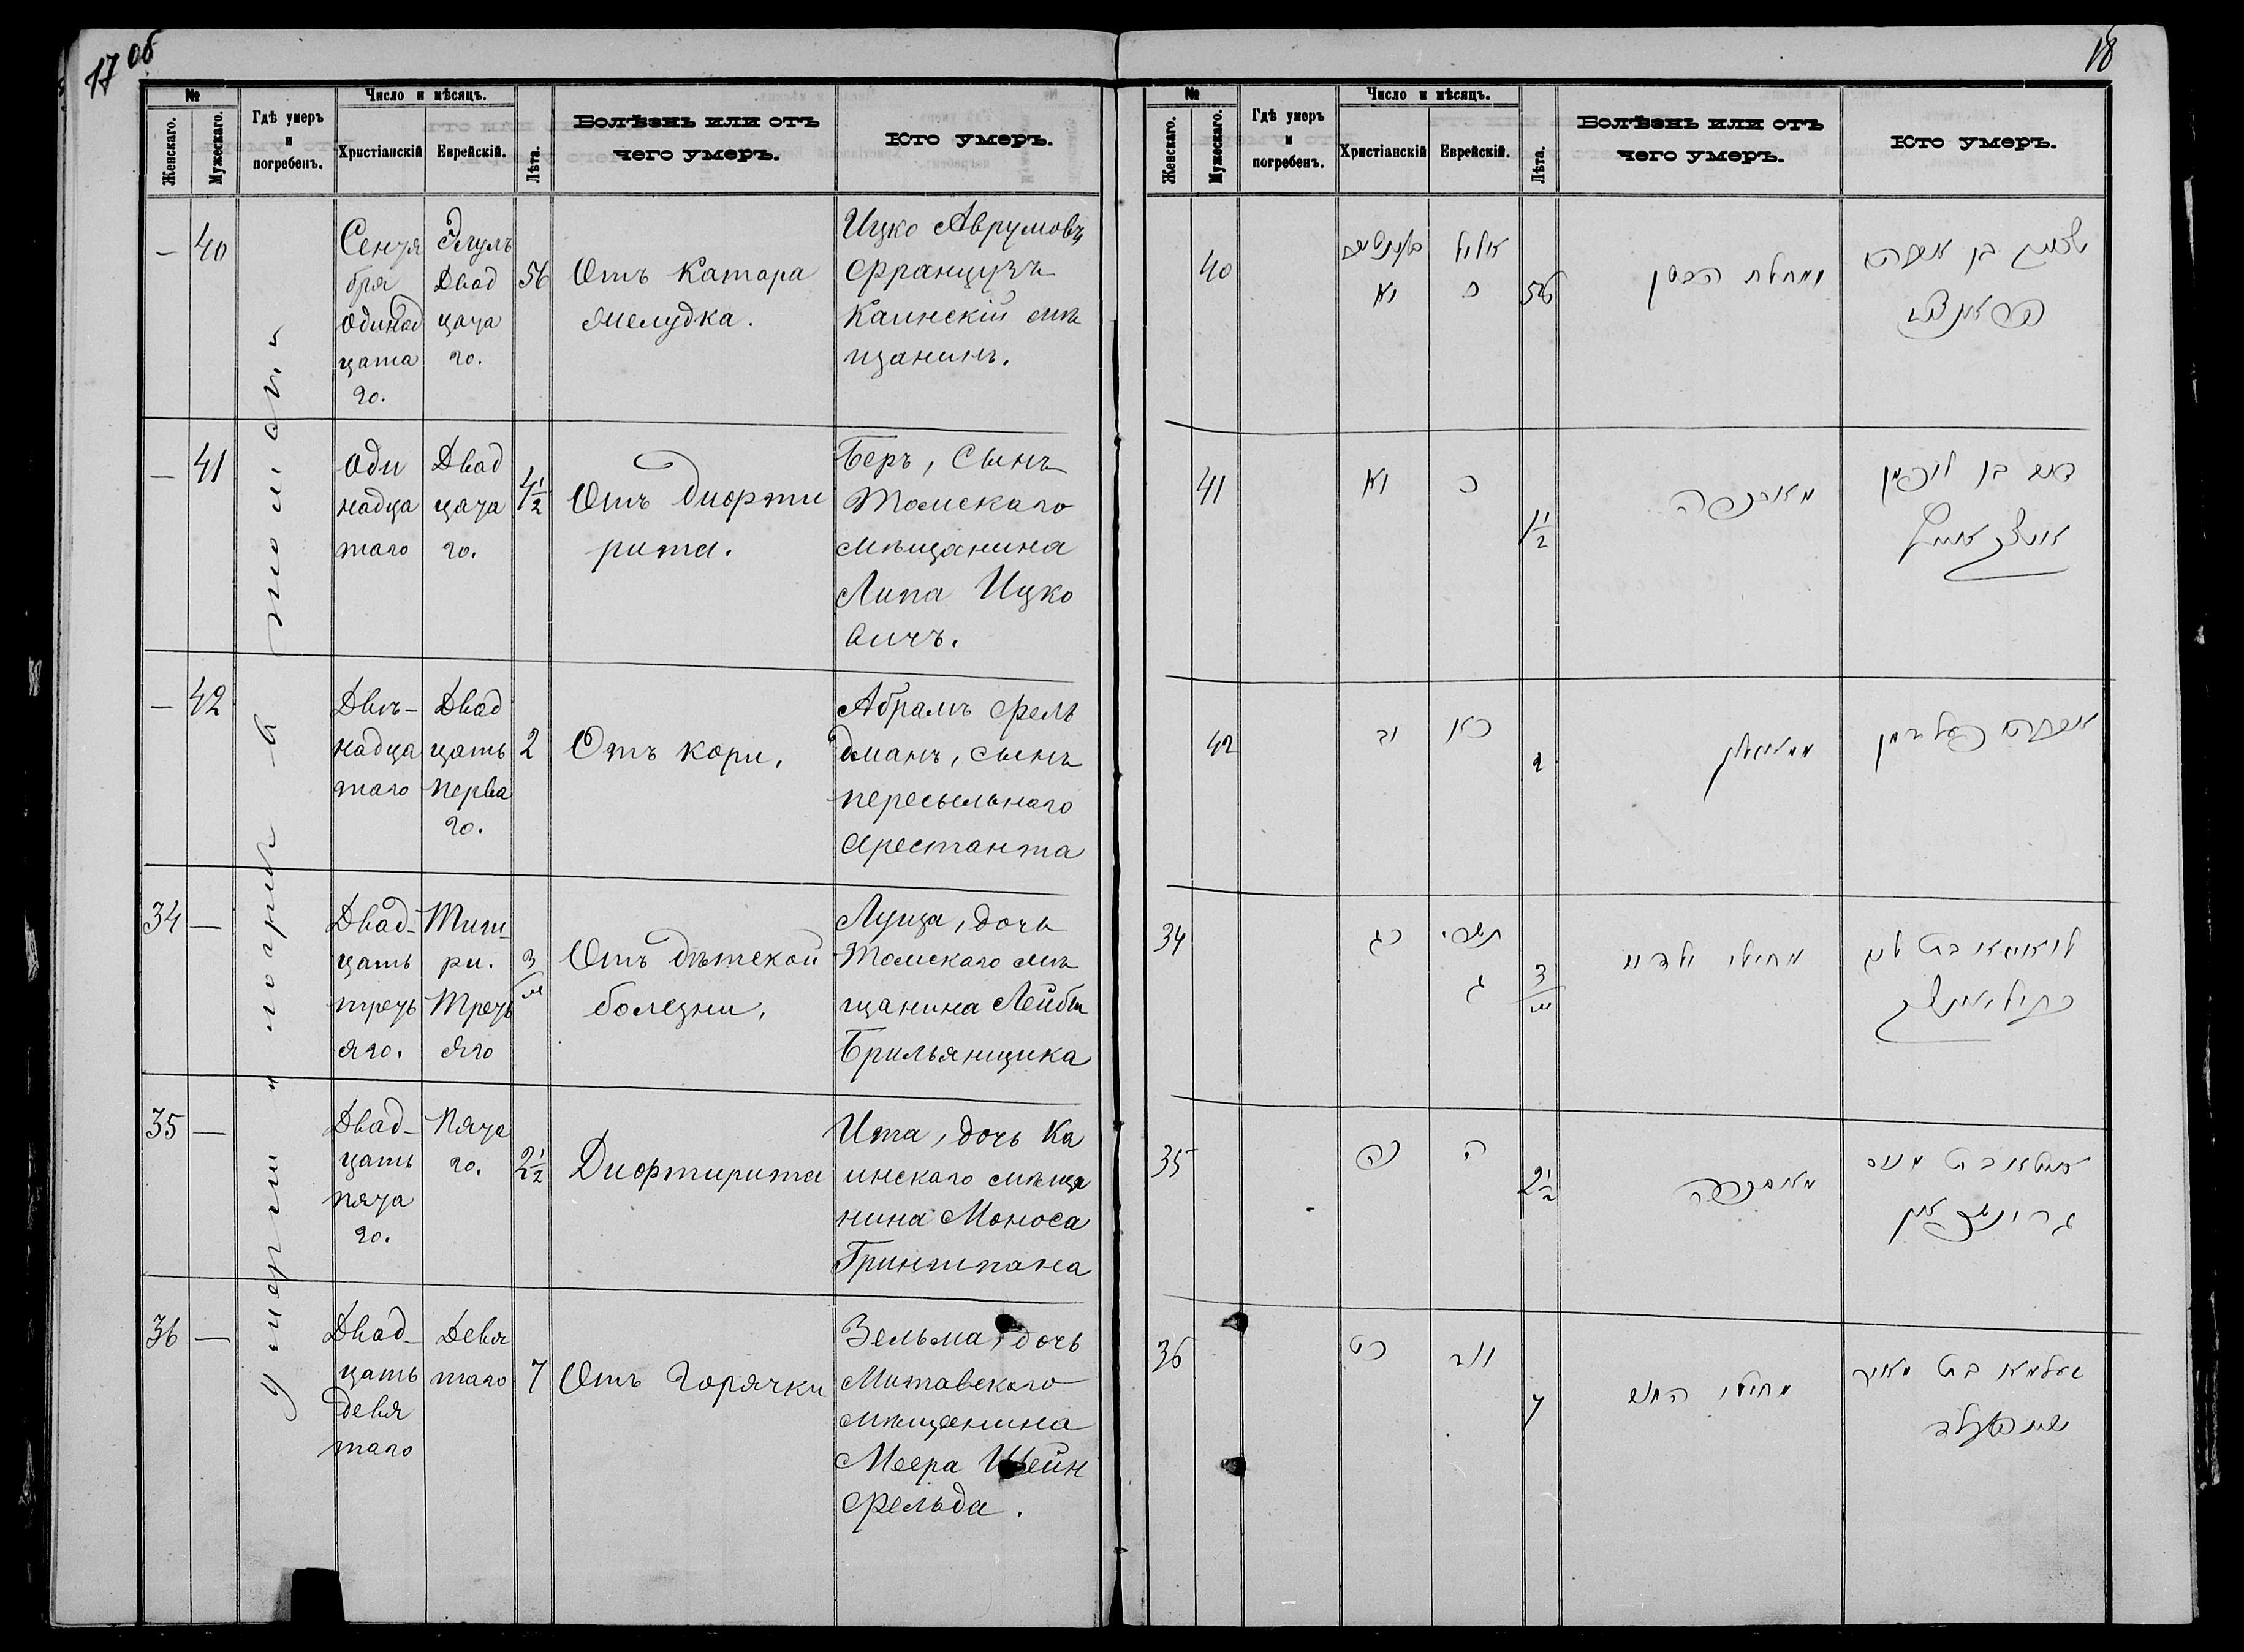 17 об
№
Женскаго.
Мужескаго.
Гдѣ умеръ
и
погребенъ.
Число и мѣсяцъ.
Христіанскій
Еврейскій.
Лѣта.
Болѣзнь или отъ
чего умеръ.
Кто умеръ.
умерши и погриб в Томски
— 40
Сентя
бря
одинад
цата
го.
Элулъ
Двад
цата
го.
56
Отъ катара
желудка.
Ицко Аврумовъ
Французъ
Каинскій мѣ
щанинъ.
— 41
Оди
надца
таго
Двад
цата
го.
1/2
Отъ дифти
рита.
Беръ, сынъ
Томскаго
мѣщанина
Липа Ицко
вичъ.
— 42
Двѣ-
надца
таго
Двад
цать
перва
го.
2
Отъ кори.
Абрамъ Фель
дманъ, сынъ
пересыльнаго
арестанта
34 —
Двад-
цать
треть
яго.
Тиш-
ри.
Треть
яго
3
м
Отъ дѣтской
болезни,
Луиза, дочь
Томскаго мѣ
щанина Лейбы
Брильянщика
35 —
Двад-
цать
пята
го.
Пята
го.
2 1/2
Дифтирита
Ита, дочь Ка
инскаго мѣща
нина Моноса
Гриншпана
36 —
Двад-
цать
девя
таго
Девя
таго
7
Отъ горячки
Зельма, дочь
Митавскаго
мѣщанина
Меера Шейн
фельда.
18
№
Женскаго.
Мужескаго.
Гдѣ умеръ
и
погребенъ.
Число и мѣсяцъ.
Христіанскій
Еврейскій.
Лѣта.
Болѣзнь или отъ
чего умеръ.
Кто умеръ.
40
יא
אלול
כ
56
יצחק בן אברהם
41
יא
כ
1 1/2
בער בן ליפמן
42
יב
כא
2
אברהם פעלדמן
34
כג
תשרי
ג
3
м
לואיזא בת ליב
35
כה
ה
2 1/2
גרינשפאן
36
כט
7
זעלמא בת מאיר
שיינפעלד